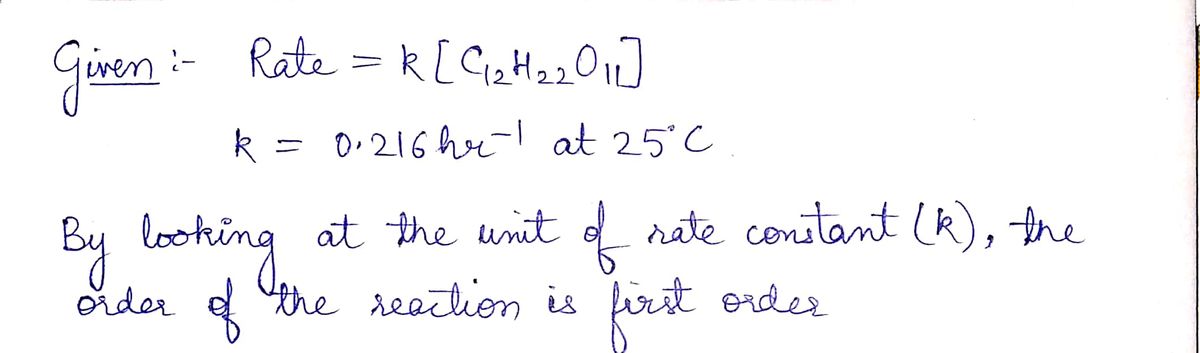 Given :- Rate = k [C₁₂H₂₂O₁₁]
k = 0.216 hr⁻¹ at 25°C
By looking at the unit of rate constant (k), the
order of the reaction is first order